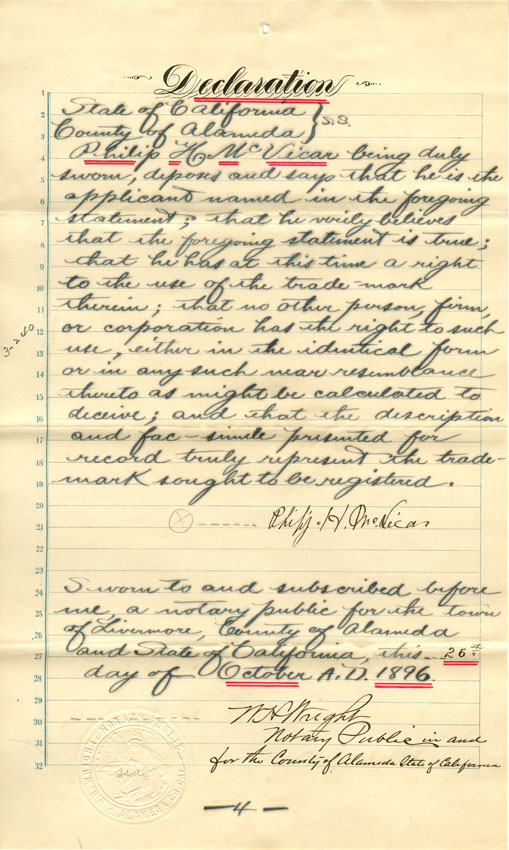 Declaration
1
2
3
4
5
6
7
8
9
10
11
12
13
14
15
16
17
18
19
20
21
22
23
24
25
26
27
28
29
30
31
32
State of California } S.S.
County of Alameda
Philip H. McVicar being duly
sworn, deposes and says that he is the
applicant named in the foregoing
statement; that he verily believes
that the foregoing statement is true;
that he has at this time a right
to the use of the trade-mark
therein; that no other person, firm,
or corporation has the right to such
use, either in the identical form
or in any such near resemblance
thereto as might be calculated to
deceive; and that the description
and fac-simile presented for
record truly represent the trade-
mark sought to be registered.
3-240
Philip H. McVicar
Sworn to and subscribed before
me, a notary public for the town
of Livermore, County of Alameda
and State of California, this 26th
day of October A.D. 1896.
W H Wright
Notary Public in and
for the County of Alameda State of California
seal
4